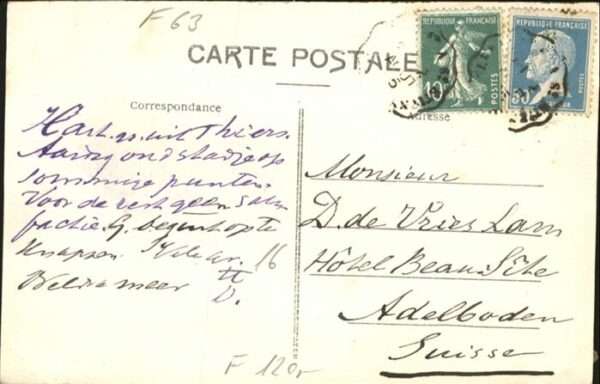 F 63
CARTE POSTALE
REPUBLIQUE FRANÇAISE
REPUBLIQUE FRANÇAISE
POSTES
Correspondance
Adresse
Hart. gr. uit Thiers.
Aardig oud stadje op
sommige punten.
Voor de rest geen
factie. G. begint op te
knappen.
Weldra meer
Monsieur
D. de Vries Lam
Hôtel Beau-Site
Adelboden
Suisse
F 120,-